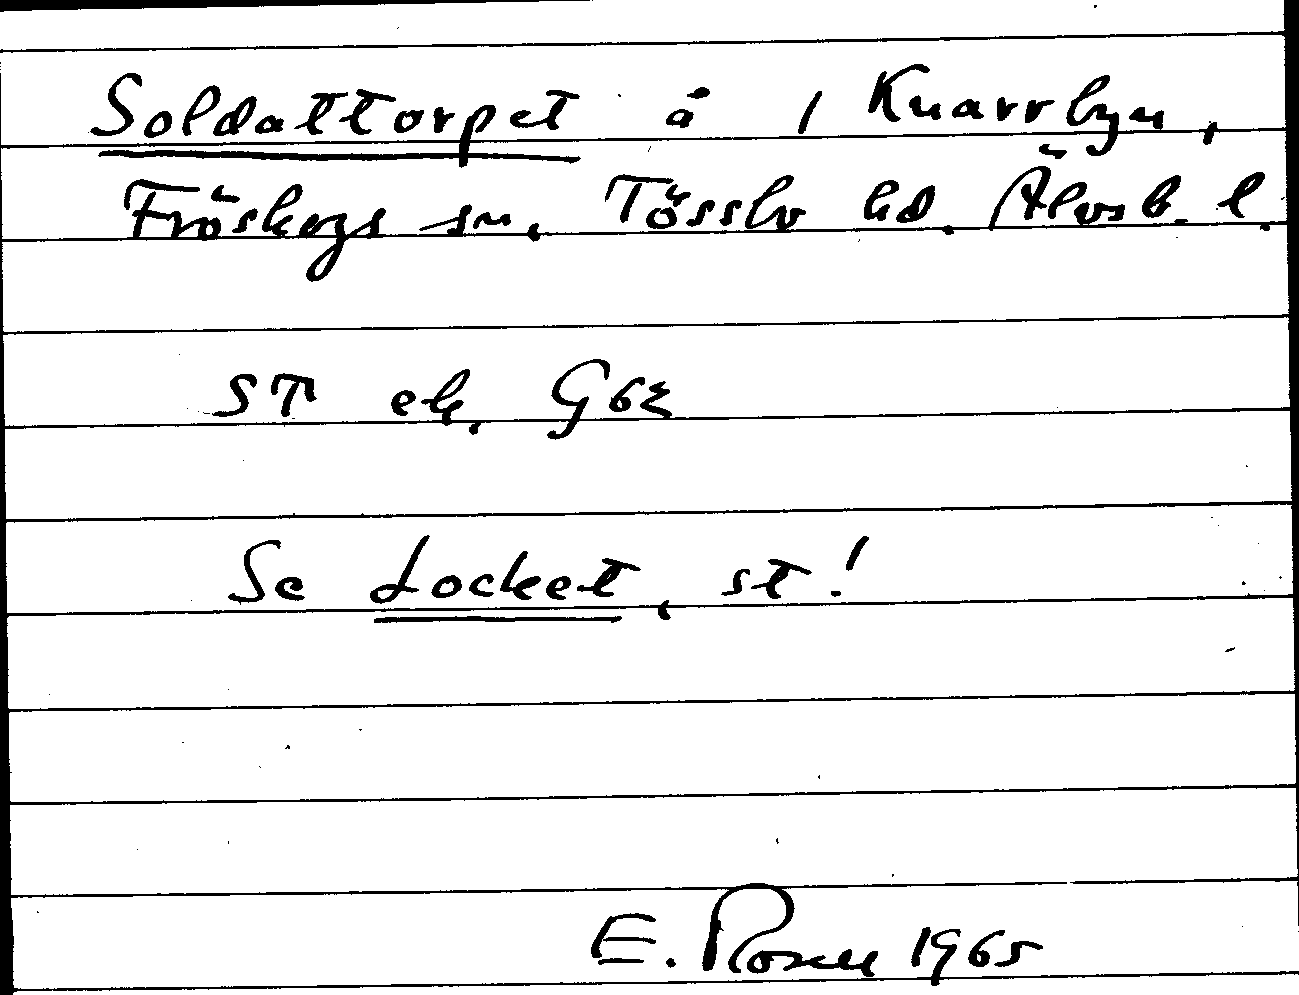 Soldattorpet å / Knarrbyn,
Fröskogs sn, Tössbo hd. Älvsb. l.
ST ek. G62
Se Locket, st!
E. Rosell 1965